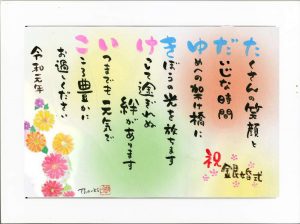 たくさんの笑顔と
だいじな時間
ゆめへの架け橋に
きぼうの光を放ちます
けして途ぎれぬ
絆があります
いつまでも元気で
こころ豊かに
お過しください
令和元年
祝
銀婚式